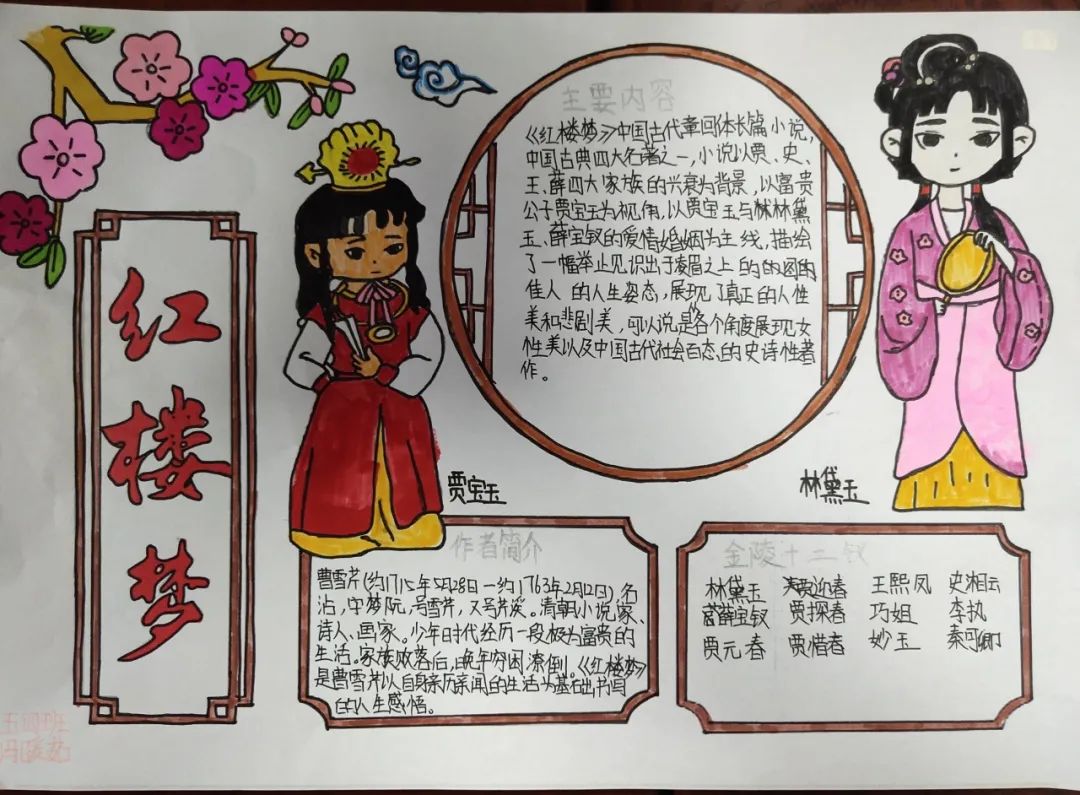 红楼梦
主要内容
《红楼梦》中国古代章回体长篇小说,
中国古典四大名著之一,小说以贾、史、
王、薛四大家族的兴衰为背景,以富贵
公子贾宝玉为视角,以贾宝玉与林林黛
玉、薛宝钗的爱情婚姻为主线,描绘
了一幅举止见识出于凌眉之上的的阁的
佳人 的人生姿态,展现了真正的人性
美和悲剧美,可以说是各个角度展现女
性美以及中国古代社会百态的史诗性著
作。
贾宝玉
林黛玉
作者简介
曹雪芹(约1715年5月28日—约1763年2月12日),名
沾,字梦阮,号雪芹,又号芹溪。清朝小说家、
诗人、画家。少年时代经历一段极为富贵的
生活。家族败落后,晚年穷困潦倒。《红楼梦》
是曹雪芹以自身亲历亲闻的生活为基础书写
的人生感悟。
金陵十二钗
林黛玉 贾迎春 王熙凤 史湘云
薛宝钗 贾探春 巧姐 李执
贾元春 贾惜春 妙玉 秦可卿
五四班